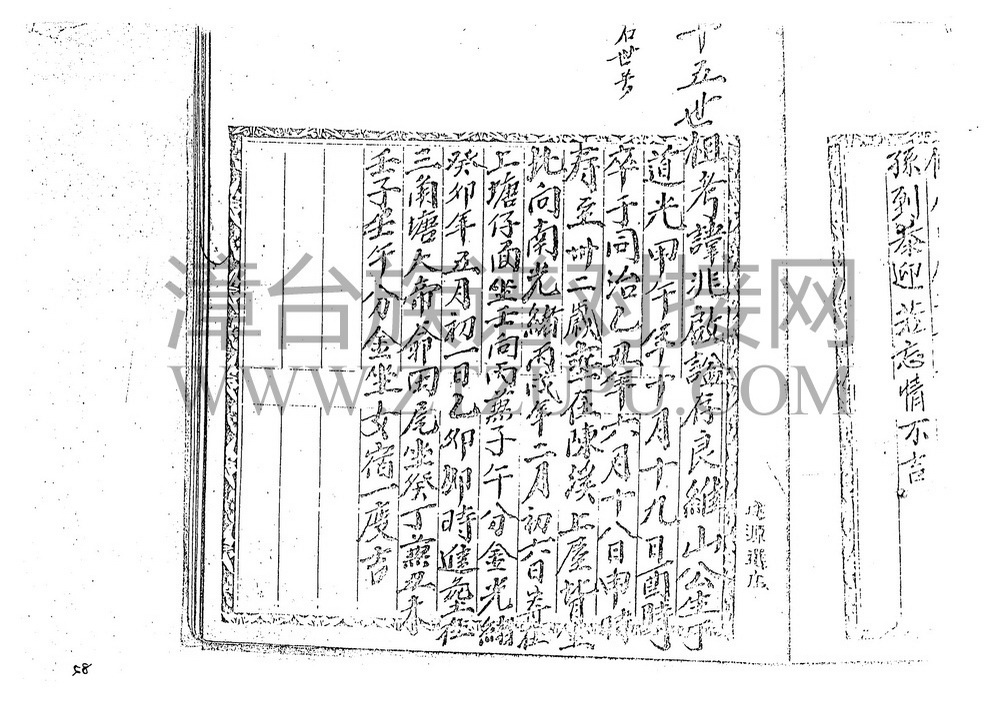 孫到恭迎
忘情不吉
十五世祖考諱兆啟謚存良維山公生于
道光甲午年十月十九日酉時
卒于同治乙丑年六月十八日申時
寿至卅二歲葬在陳溪上屋背坐
北向南光緒丙戌年二月初六日葬在
上塘仔面坐壬向丙兼子午分金光緒
癸卯年五月初一日乙卯卯時進塋在
三角塘大帝命田尾坐癸丁兼丑未
壬子壬午分金坐女宿一度吉
漳台族谱对接网
WWW.ZTZUPU.COM
58